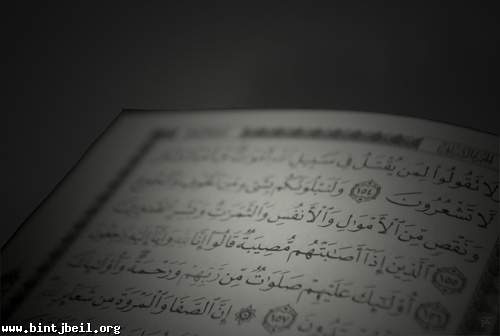 تَقُولُوا۟ لِمَن يُقْتَلُ فِى سَبِيلِ
لَّا تَشْعُرُونَ ١٥٤ وَلَنَبْلُوَنَّكُم بِشَىْءٍ مِّنَ
وَنَقْصٍ مِّنَ ٱلْأَمْوَٰلِ وَٱلْأَنفُسِ وَٱلثَّمَرَٰتِ وَبَشِّرِ
١٥٥ ٱلَّذِينَ إِذَآ أَصَٰبَتْهُم مُّصِيبَةٌ قَالُوٓا۟ إِنَّا
١٥٦ أُو۟لَٰٓئِكَ عَلَيْهِمْ صَلَوَٰتٌ مِّن رَّبِّهِمْ وَرَحْمَةٌ وَأُو۟لَٰٓئِكَ
١٥٧ إِنَّ ٱلصَّفَا وَٱلْمَرْوَةَ مِن شَعَآئِرِ
www.bintjbeil.org